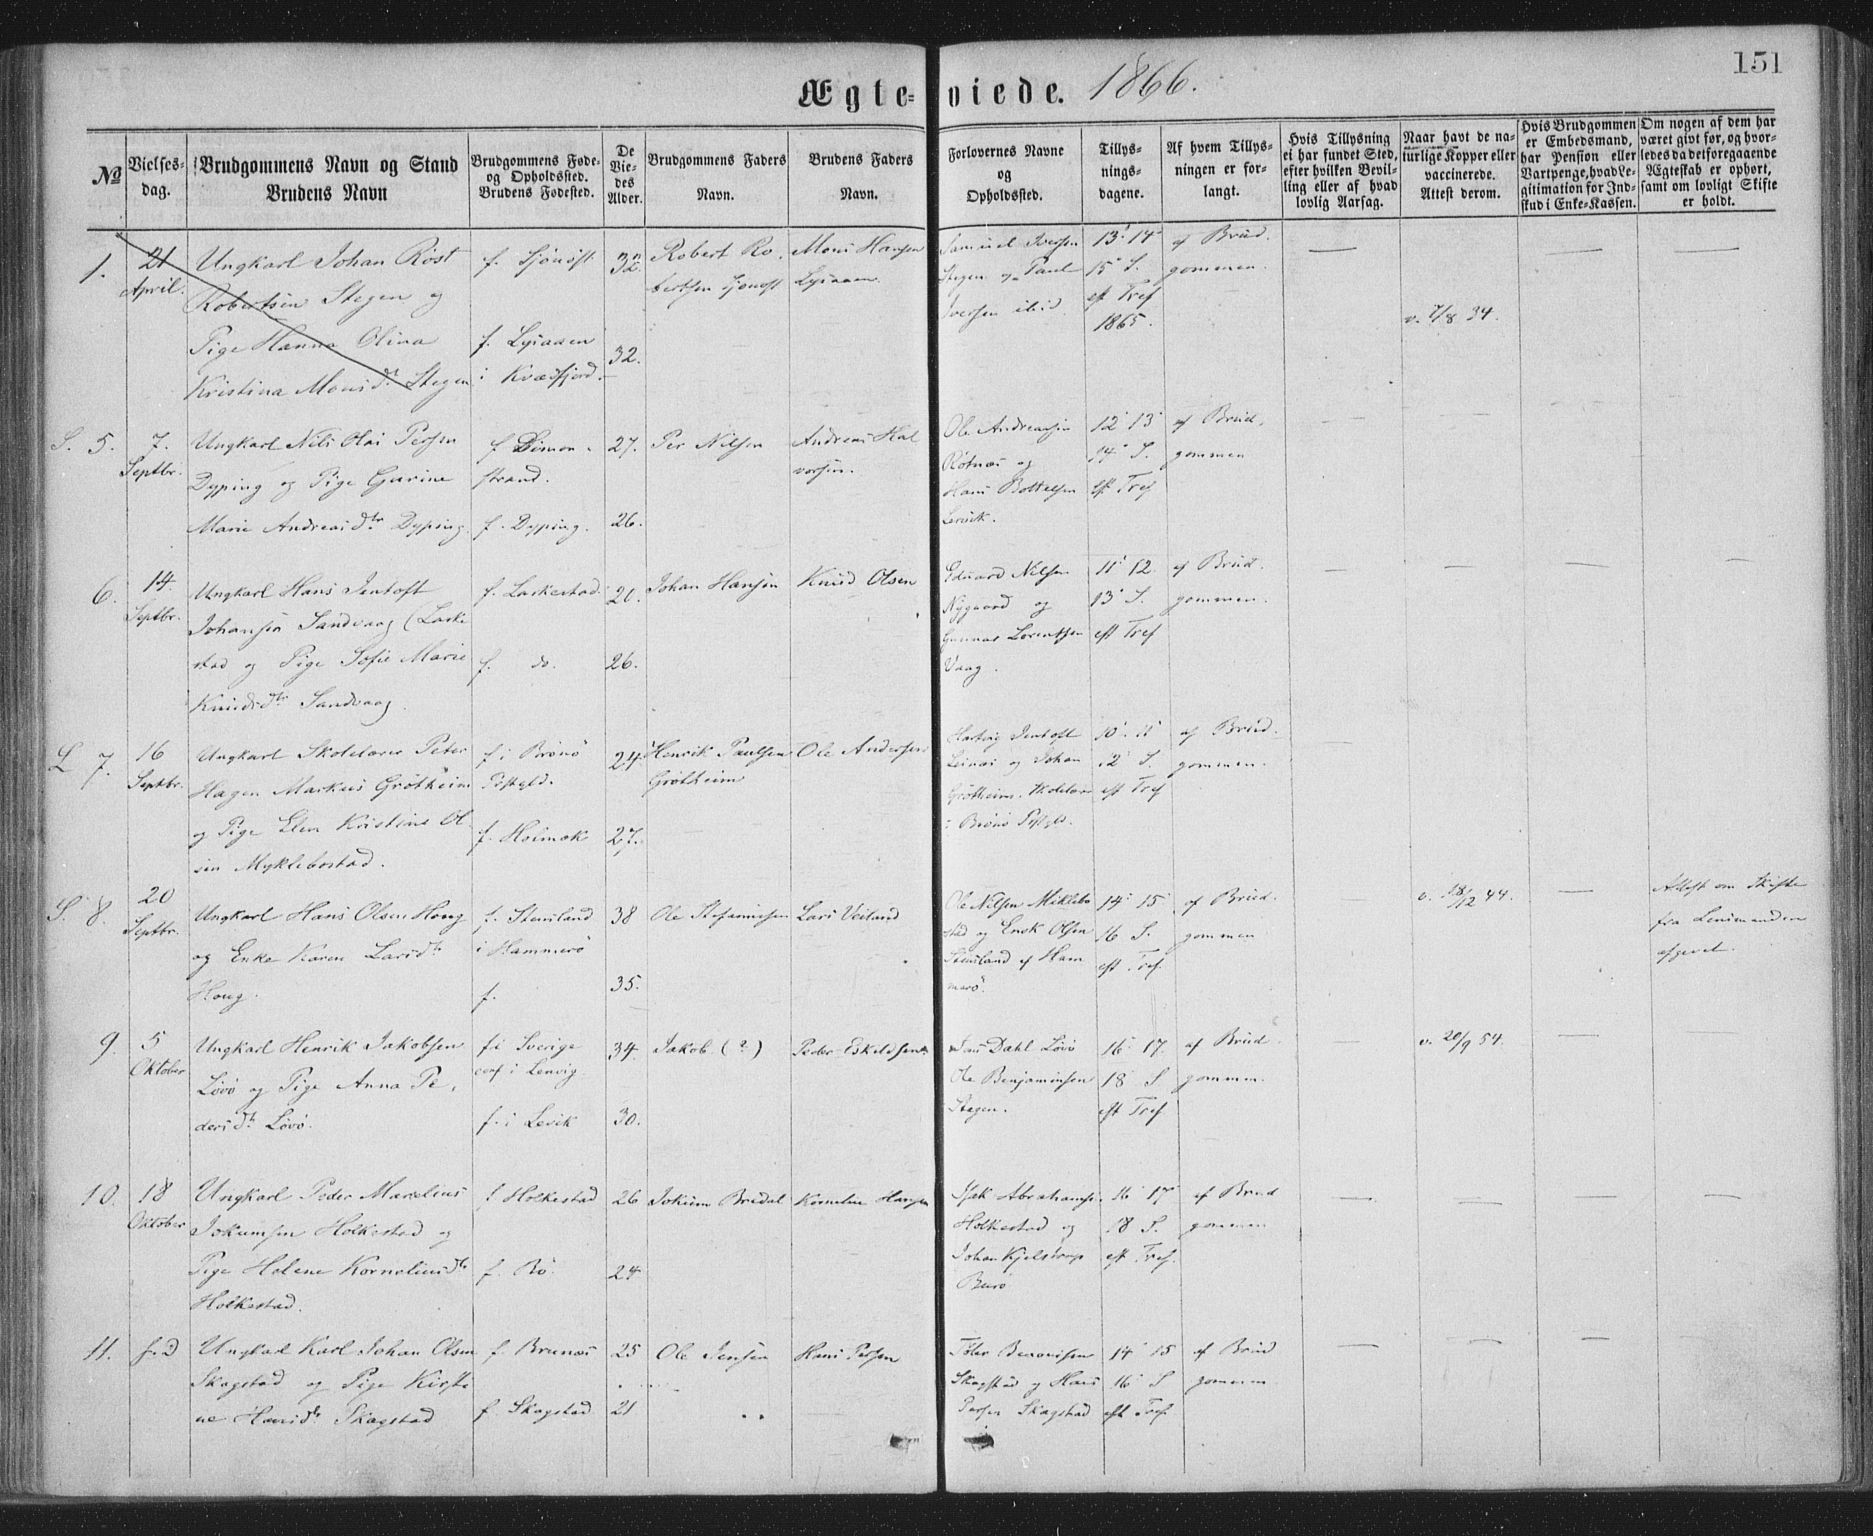 151
Ægte=viede. 1866.
№
Vielses-
dag.
Brudgommens Navn og Stand
Brudens Navn
Brudgommens Føde-
og Opholdssted.
Brudens Fødested.
De
Vie-
des
Alder.
Brudgommens Faders
Navn.
Brudens Faders
Navn.
Forlovernes Navne
og
Opholdssted.
Tillys-
nings-
dagene.
Af hvem Tillys-
ningen er for-
langt.
Hvis Tillysning
ei har fundet Sted,
efter hvilken Bevil-
ling eller af hvad
lovlig Aarsag.
Naar havt de na-
turlige Kopper eller
vaccinerede.
Attest derom.
Hvis Brudgommen
er Embedsmand,
har Pension eller
Vartpenge, hvad Le-
gitimation for Ind-
skud i Enke-Kassen.
Om nogen af dem har
været givt før, og hvor-
ledes da det foregaaende
Ægteskab er ophørt,
samt om lovligt Skifte
er holdt.
1.
21
April.
Ungkarl Johan Röst
Robertsen Stegen og
Pige Hanna Olina
Kristina Monsdr Stegen
f. Sjönöst
f. Lysaaen
i Kvædfjord.
32.
32.
Robert Ro-
bertsen
Mons Hansen
Lysaaen.
Samuel Iversen
Stegen og Paul
Iversen ibid.
13' 14'
15' S.
eft Tref
1865.
af Brud-
gommen.
v. 7/8 34.
S. 5.
7.
Septbr.
Ungkarl Nils Olai Persen
Dyping og Pige Gurine
Marie Andreasdtr Dyping.
f. Simon-
strand.
f. Dyping.
27.
26.
Per Nilsen
Andreas Hal
vorsen.
Ole Andreassen
Rötnæs og
Hans Bottelsen
Lervik.
12' 13'
14' S.
eft Tref
af Brud-
gommen
6.
14.
Septbr.
Ungkarl Hans Jentoft
Johansen Sandvaag (Laske
stad og Pige Sofie Marie
Knudsdtr Sandvaag.
f. Laskestad.
f. do.
20.
26.
Johan Hansen
Knud Olsen
Eduard Nilsen
Nygaard og
Gunnar Lorentsen
Vaag.
11' 12.
13' S.
eft Tref
af Brud-
gommen.
L 7.
16
Septbr.
Ungkarl Skolelærer Peter
Hagen Markus Grötheim
og Pige Elen Kristine Ol
sen Myklebostad.
f. i Brönö
Pstgld.
f. Holmok
24.
27.
Henrik Paulsen
Grötheim
Ole Andersen
Hartvig Jentoft
Leines og Johan
Grötheim. Skolelærer
i Brönö Pstgld.
10' 11'
12' S.
eft Tref
af Brud-
gommen.
S. 8.
20
Septbr.
Ungkarl Hans Olsen Houg
og Enke Karen Larsdtr
Houg.
f. Stensland
i Hammerö
f.
38
35.
Ole Stefanusen
Lars Veiland
Ole Nilsen Miklebo
stad og Enok Olsen
Stensland af Ham
merö.
14' 15'
16 S.
eft Tref.
af Brud-
gommen
v. 18/12 44.
Attest om Skifte
fra Lensmanden
afgivet.
9.
5
Oktober
Ungkarl Henrik Jakobsen
Lövö og Pige Anna Pe-
dersdtr Lövö.
f i Sverige
conf i Lenvig.
f. i Levik
34.
30.
Jakob (?)
Peder Eskildsen
Dahl Lövö
Ole Benjaminsen
Stegen.
16' 17.
18 S
eft Tref
af Brud-
gommen.
v. 20/9 54.
10.
18
Oktober
Ungkarl Peder Marelius
Jokumsen Holkestad og
Pige Helene Korneliusdtr
Holkestad.
f Holkestad
f. Bö.
26
24
Jokum Bredal
Kornelius Hansen
Isak Abrahamsen
Holkestad og
Johan Kjelstrup
Burö
16' 17'
18 S.
eft Tref.
af Brud
gommen
11.
s. d
Ungkarl Karl Johan Olsen
Skagstad og Pige Kirsti
ne Hansdtr Skagstad
f. Brunæs
f. Skagstad
25
21
Ole Jensen
Hans Persen
Skagstad og Hans
Persen Skagstad
14' 15
16' S
eft Tref
af Brud
gommen